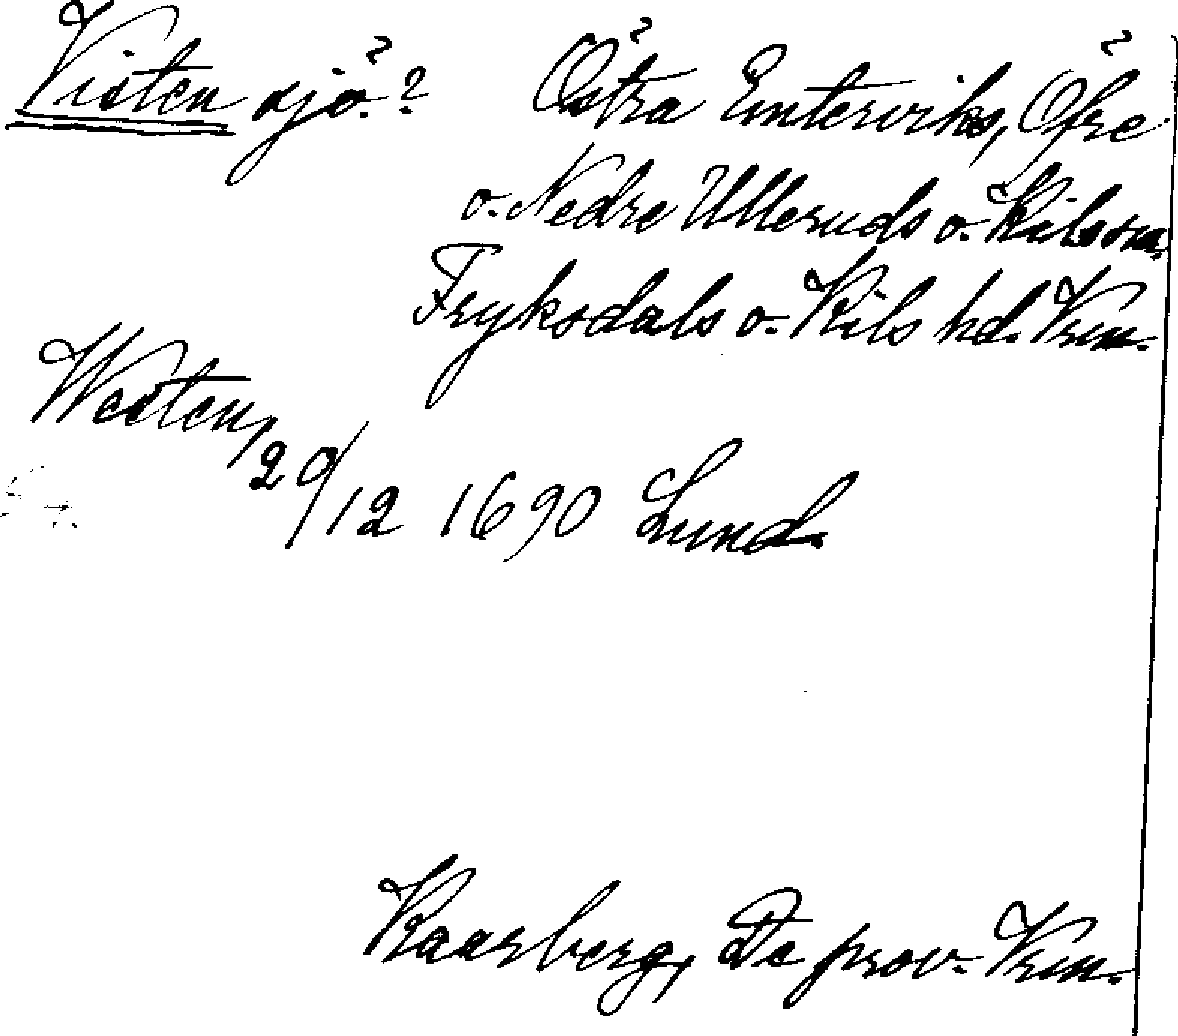 Visten sjö? Östra Emterviks, Öfre
o. Nedre Ulleruds o. Kils snr,
Fryksdals o. Kils hd. Vrm.
Westen, 20/12 1690 Lund.
Kaarberg, De prov. Vrm.